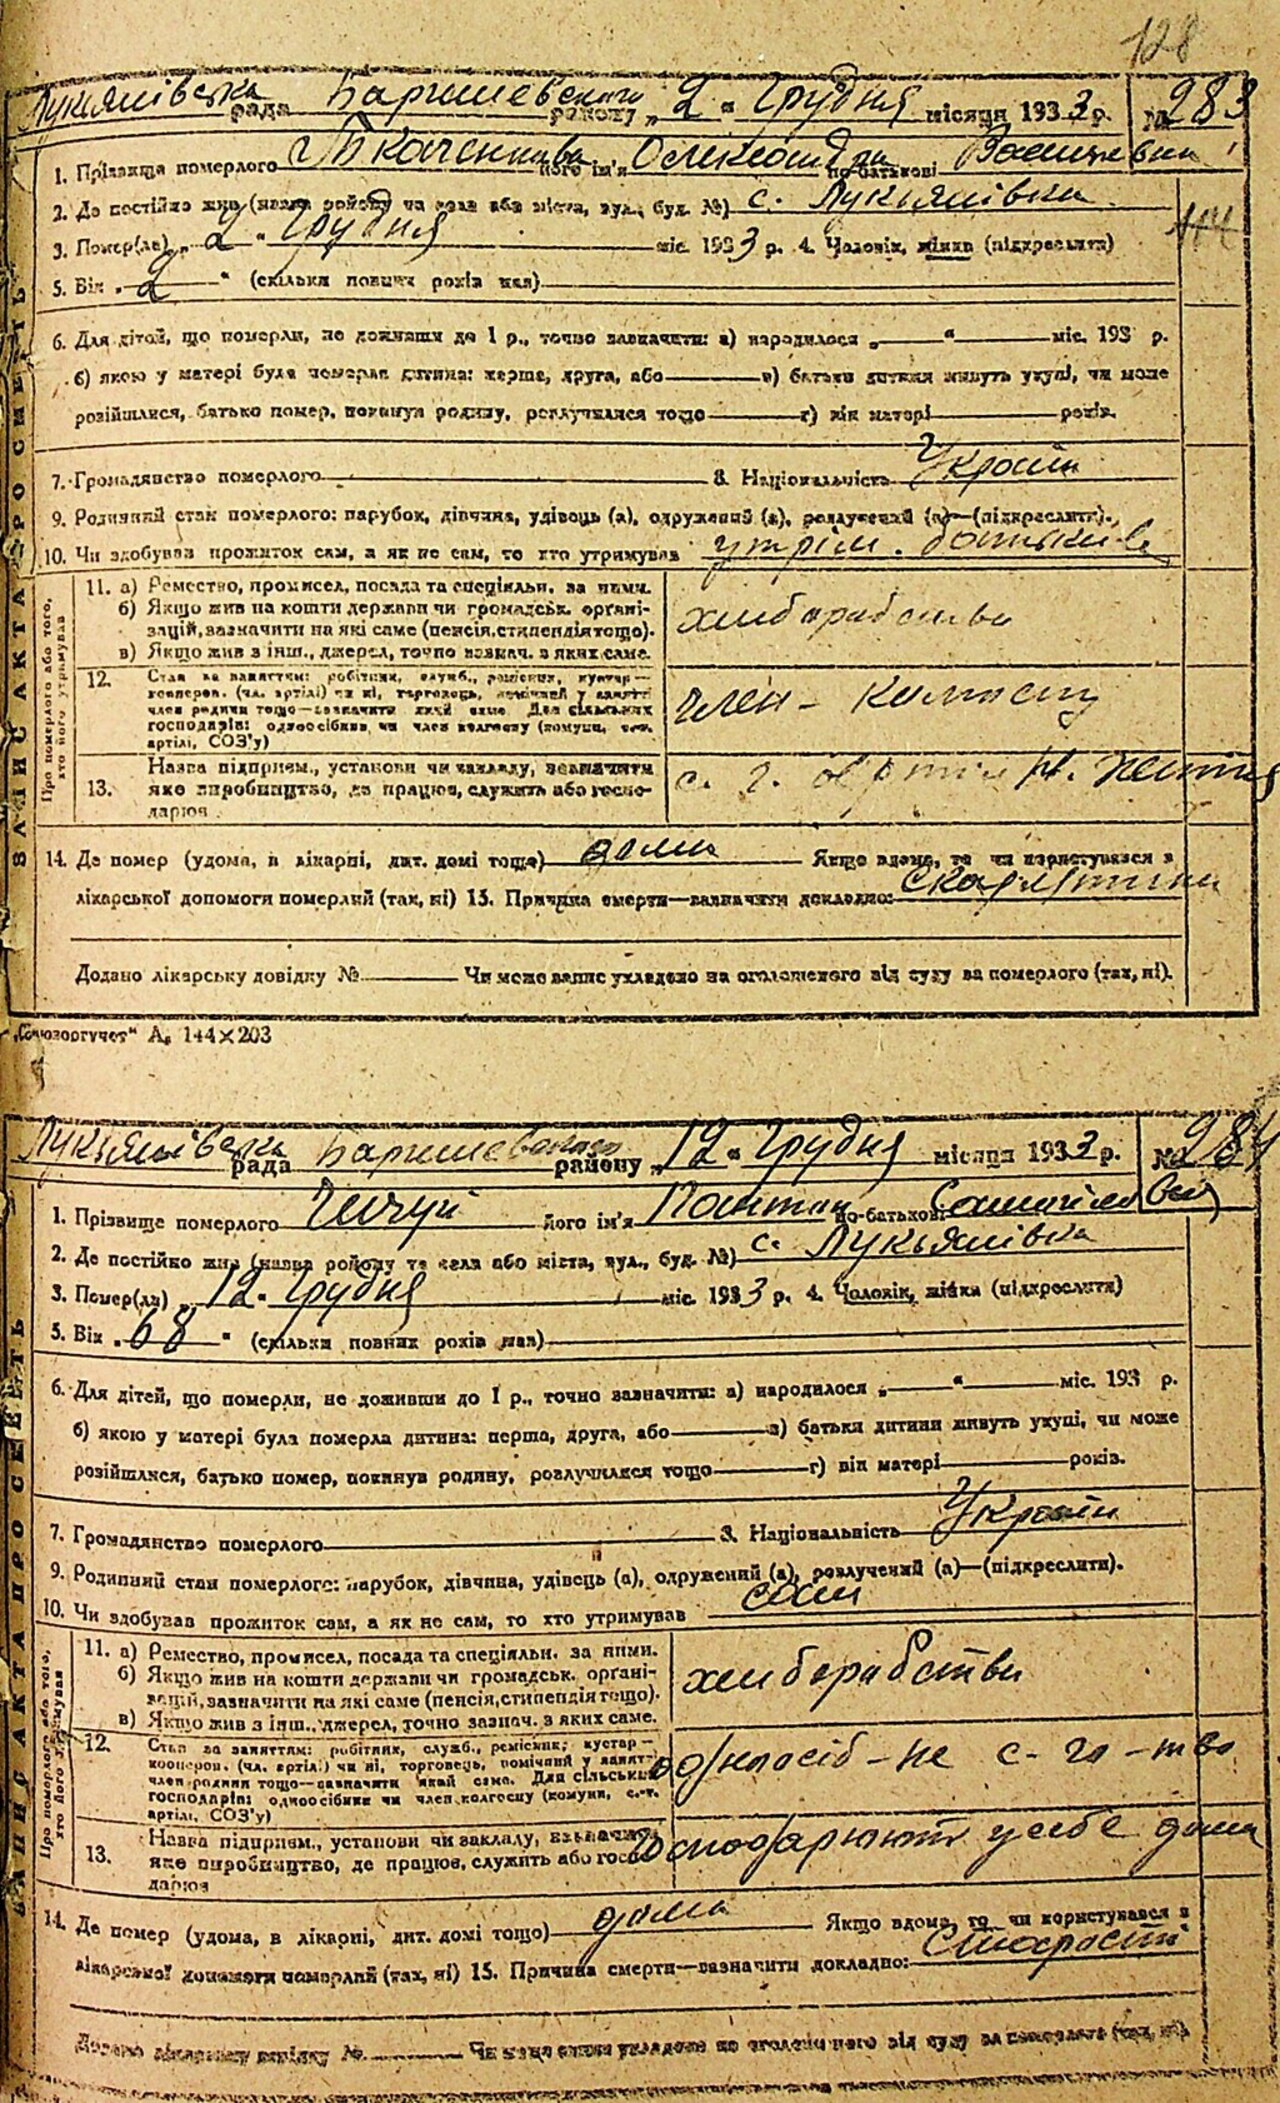 128
Лукяшівська рада Баришевського району „2“ Грудня місяця 1933 р. № 283
1. Прізвища померлого Ткаченкова його ім'я Олександра по-батькові
2. Де постійно жив (назва району та села або міста, вул., буд. №) с. Лукьяшівка
3. Помер(ла) „2“ Грудня міс. 1933 р. 4. Чоловік, жінка (підкреслити)
5. Вік „2“ (скільки повних років мав)
6. Для дітей, що померли, не доживши до 1 р., точно зазначити: а) народилося „ “ міс. 193 р.
б) якою у матері була померла дитина: перша, друга, або в) батьки дитини живуть укупі, чи може
розійшлися, батько помер, покинув родину, розлучилися тощо г) вік матері років.
7. Громадянство померлого 8. Національність Україн
9. Родинний стан померлого: парубок, дівчина, удівець (а), одружений (а), розлучений (а)—(підкреслити).
10. Чи здобував прожиток сам, а як не сам, то хто утримував утрім. батьків
ЗАПИС АКТА ПРО СМЕРТЬ
Про померлого або того, хто його утримував
11. а) Ремество, промисел, посада та спеціяльн. за ними.
б) Якщо жив на кошти держави чи громадськ. організацій, зазначити на які саме (пенсія, стипендія тощо).
в) Якщо жив з інш., джерел, точно зазнач. з яких саме.
хліборобство
12. Стан за заняттям: робітник, служб., ремісник, кустар—
кооперов. (чл. артілі) чи ні, торговець, помічний у занятті
член родини тощо—зазначити який саме. Для сільських
господарів: одноосібник чи член колгоспу (комуни, с.-г.
артілі, СОЗ'у)
член - колгоспу
13. Назва підприєм., установи чи закладу, зазначити
яке виробництво, де працює, служить або госпо-
дарює
с. г. артіль
14. Де помер (удома, в лікарні, дит. домі тощо) дома Якщо вдома, то чи користувався з
лікарської допомоги померлий (так, ні) 15. Причина смерти—зазначити докладно: Скарлятина
Додано лікарську довідку № Чи може запис укладено на оголошеного від суду за померлого (так, ні).
„Союзоргучет“ А₆ 144×203
Лукьяшівська рада Баришевського району „12“ Грудня місяця 1933 р. № 284
1. Прізвище померлого його ім'я по-батькові Самойлович
2. Де постійно жив (назва району та села або міста, вул., буд. №) с. Лукьяшівка
3. Помер(ла) „12“ Грудня міс. 1933 р. 4. Чоловік, жінка (підкреслити)
5. Вік „68“ (скільки повних років мав)
6. Для дітей, що померли, не доживши до 1 р., точно зазначити: а) народилося „ “ міс. 193 р.
б) якою у матері була померла дитина: перша, друга, або в) батьки дитини живуть укупі, чи може
розійшлися, батько помер, покинув родину, розлучилися тощо г) вік матері років.
7. Громадянство померлого 8. Національність Україн
9. Родинний стан померлого: парубок, дівчина, удівець (а), одружений (а), розлучений (а)—(підкреслити).
10. Чи здобував прожиток сам, а як не сам, то хто утримував сам
ЗАПИС АКТА ПРО СМЕРТЬ
Про померлого або того, хто його утримував
11. а) Ремество, промисел, посада та спеціяльн. за ними.
б) Якщо жив на кошти держави чи громадськ. організацій, зазначити на які саме (пенсія, стипендія тощо).
в) Якщо жив з інш., джерел, точно зазнач. з яких саме.
хліборобство
12. Стан за заняттям: робітник, служб., ремісник, кустар—
кооперов. (чл. артілі) чи ні, торговець, помічний у занятті
член родини тощо—зазначити який саме. Для сільських
господарів: одноосібник чи член колгоспу (комуни, с.-г.
артілі, СОЗ'у)
одноосіб-не с-го-тво
13. Назва підприєм., установи чи закладу, зазначити
яке виробництво, де працює, служить або госпо-
дарює
Господарюють у себе дома
14. Де помер (удома, в лікарні, дит. домі тощо) дома Якщо вдома, то чи користувався з
лікарської допомоги померлий (так, ні) 15. Причина смерти—зазначити докладно: Старости
Додано лікарську довідку № Чи може запис укладено на оголошеного від суду за померлого (так, ні).